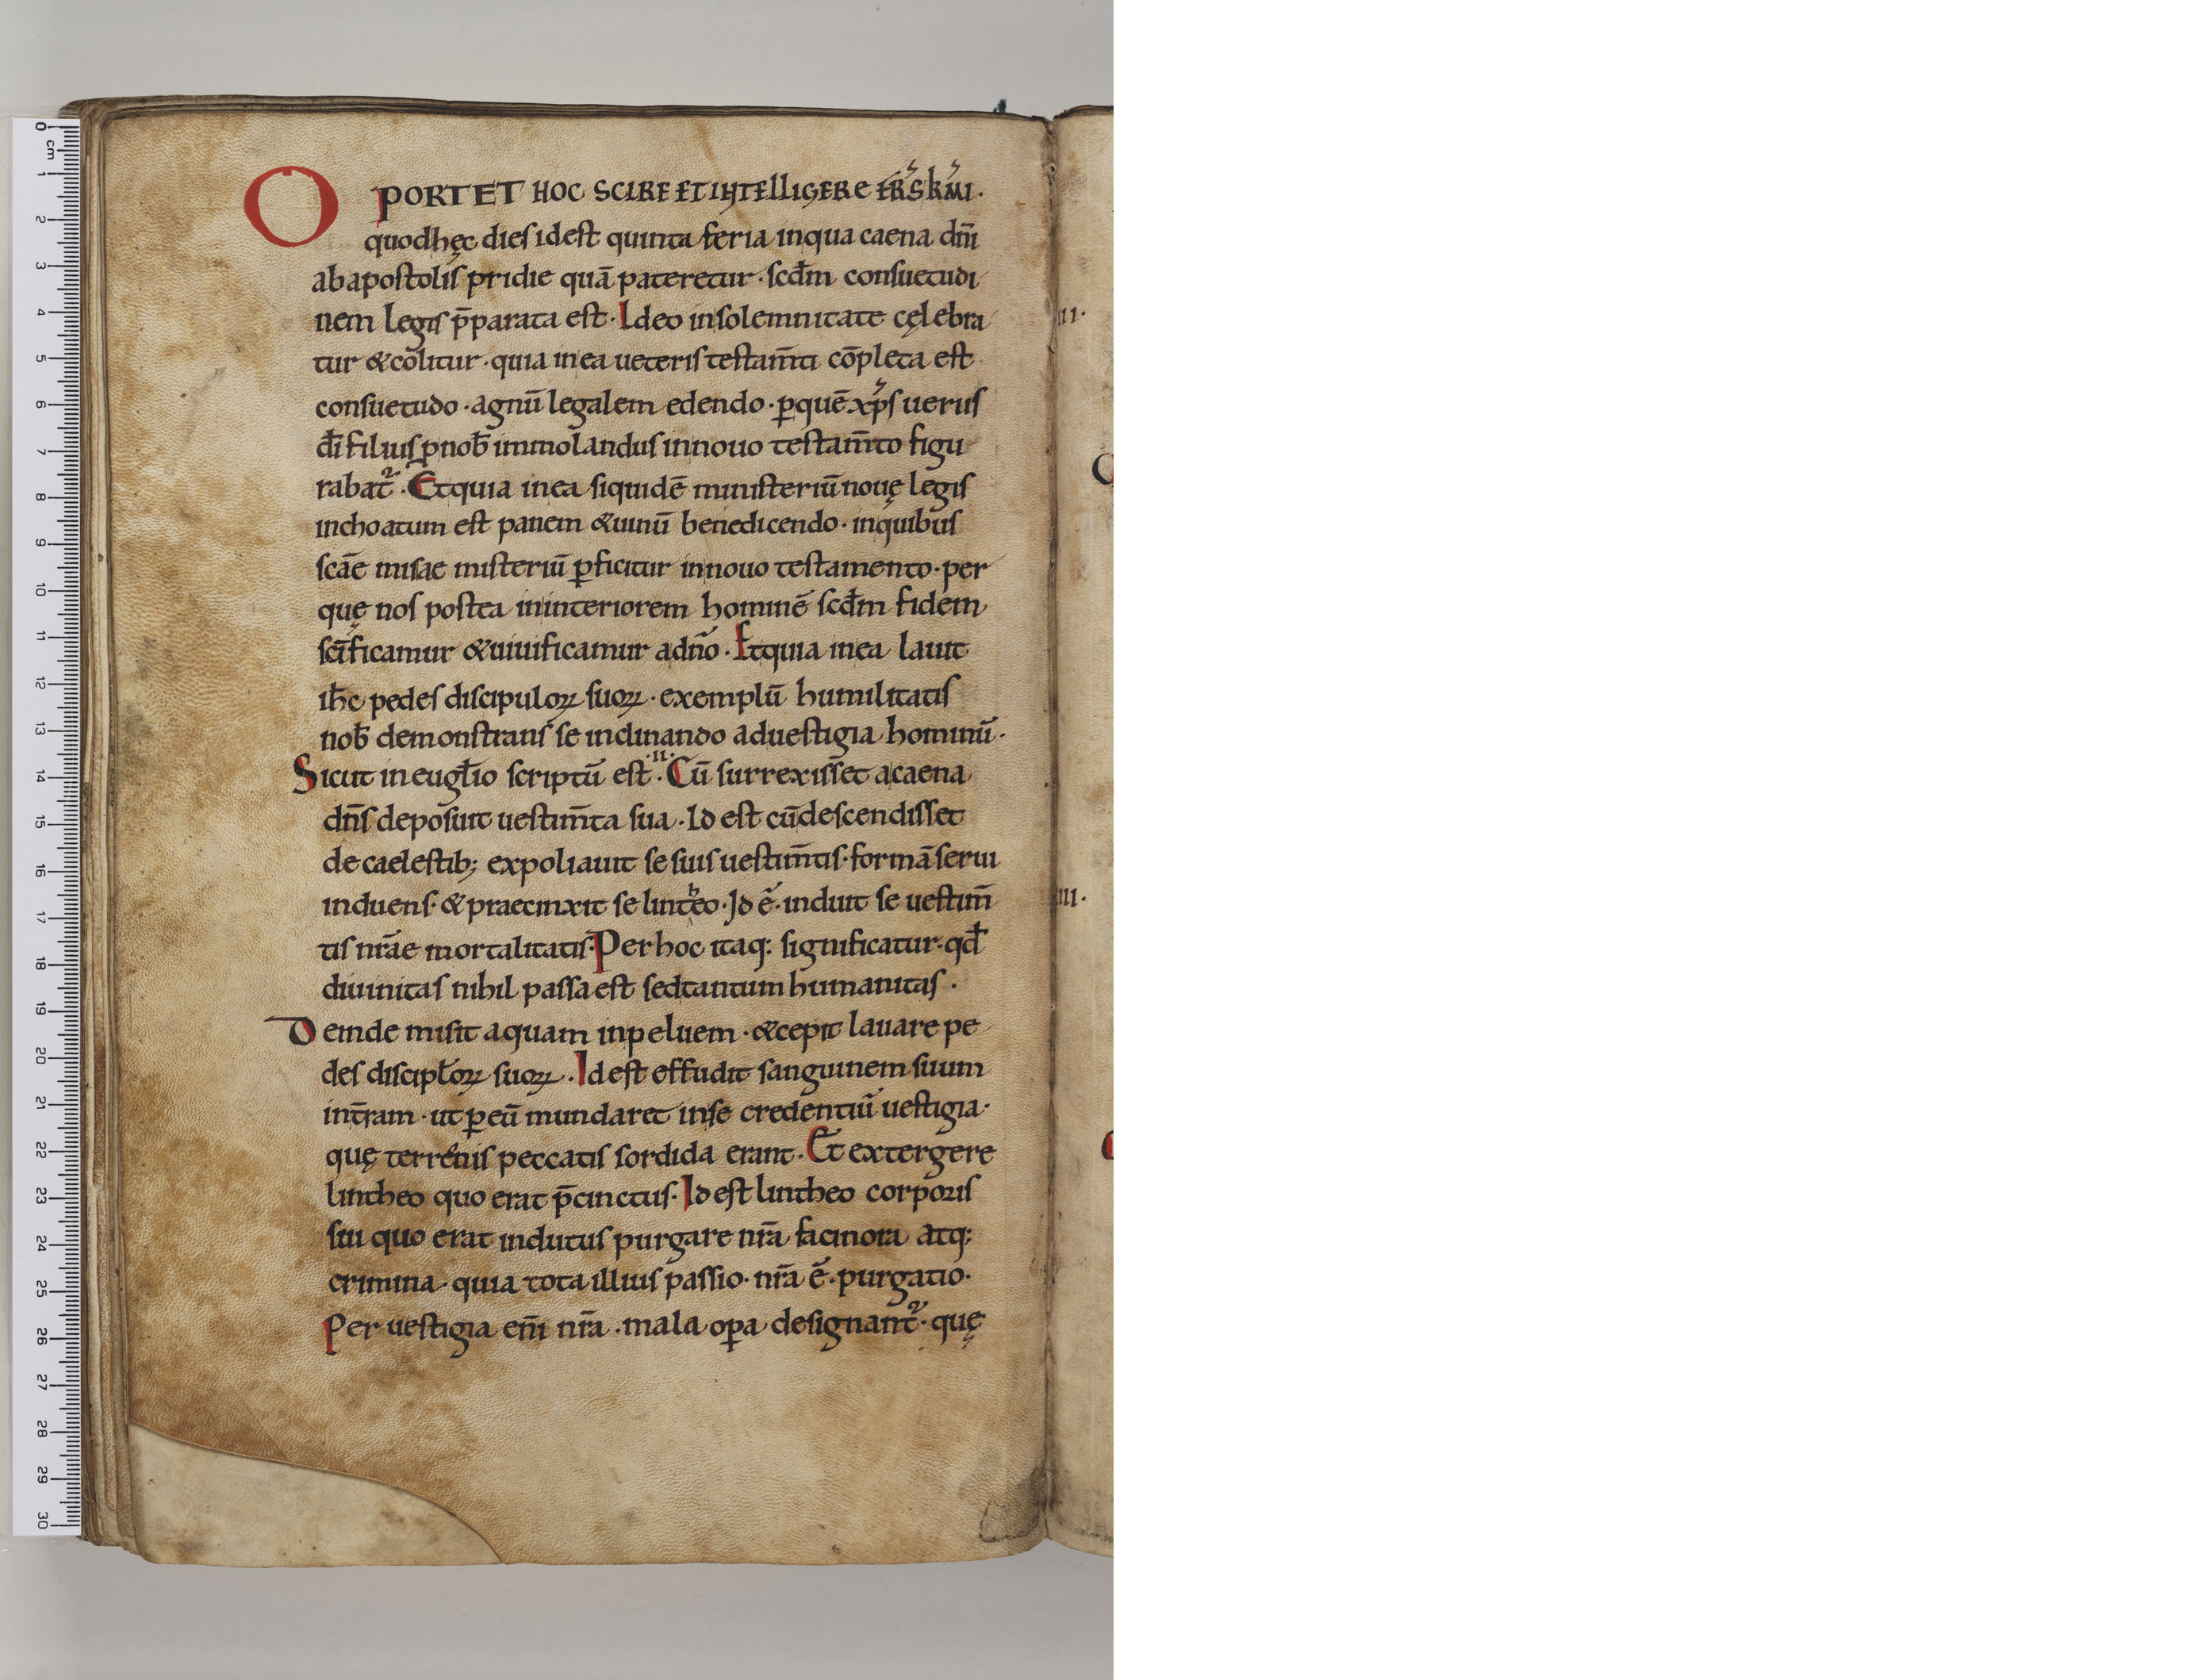 OPORTET HOC SCIRE ET INTELLIGERE FRS KMI.
quod hęc dies id est quinta feria in qua caena dn̄i
ab apostolis pridie quā pateretur · scd̄m consuetudi
nem legis p̄parata est · Ideo in solemnitate cęlebra
tur & colitur · quia in ea ueteris testam̄ti cōpleta est
consuetudo · agnū legalem edendo · ꝑ quē xp̄s uerus
dī filius ꝓ nob̄ immolandus in nouo testam̄to figu
rabat᷑ · Et quia in ea siquidē ministeriū nouę legis
inchoatum est panem & uinū benedicendo · in quibus
scāe misae misteriū ꝑficitur in nouo testamento · per
quę nos postea in interiorem hominē scd̄m fidem
scīficamur & uiuificamur a dn̄o · Et quia in ea lauit
ih̄c pedes discipuloꝝ suoꝝ · exemplū humilitatis
nob̄ demonstrans se inclinando ad uestigia hominū ·
Sicut in eugl̄io scriptū est · II · Cū surrexisset a caena
dn̄s deposuit uestim̄ta sua · Id est cū descendisset
de caelestib; expoliauit se suis uestim̄tis · formā serui
induens · & praecinxit se linth́eo · Id ē · induit se uestim̄
tis nr̄ae mortalitatis · Per hoc itaq: significatur · qd̄
diuinitas nihil passa est sed tantum humanitas ·
Deinde misit aquam in peluem · & cepit lauare pe
des discipl̄oꝝ suoꝝ · Id est effudit sanguinem suum
in t̄ram · ut ꝑ eū mundaret in se credentiū uestigia ·
quę terrenis peccatis sordida erant · Et extergere
lintheo quo erat p̄cinctus · Id est lintheo corporis
sui quo erat indutus purgare nr̄a facinora atq;
crimina · quia tota illius passio · nr̄a ē · purgatio ·
Per uestigia eni̅ nr̄a · mala oꝑa designant᷑ · quę
II ·
III ·
0 cm 1 2 3 4 5 6 7 8 9 10 11 12 13 14 15 16 17 18 19 20 21 22 23 24 25 26 27 28 29 30